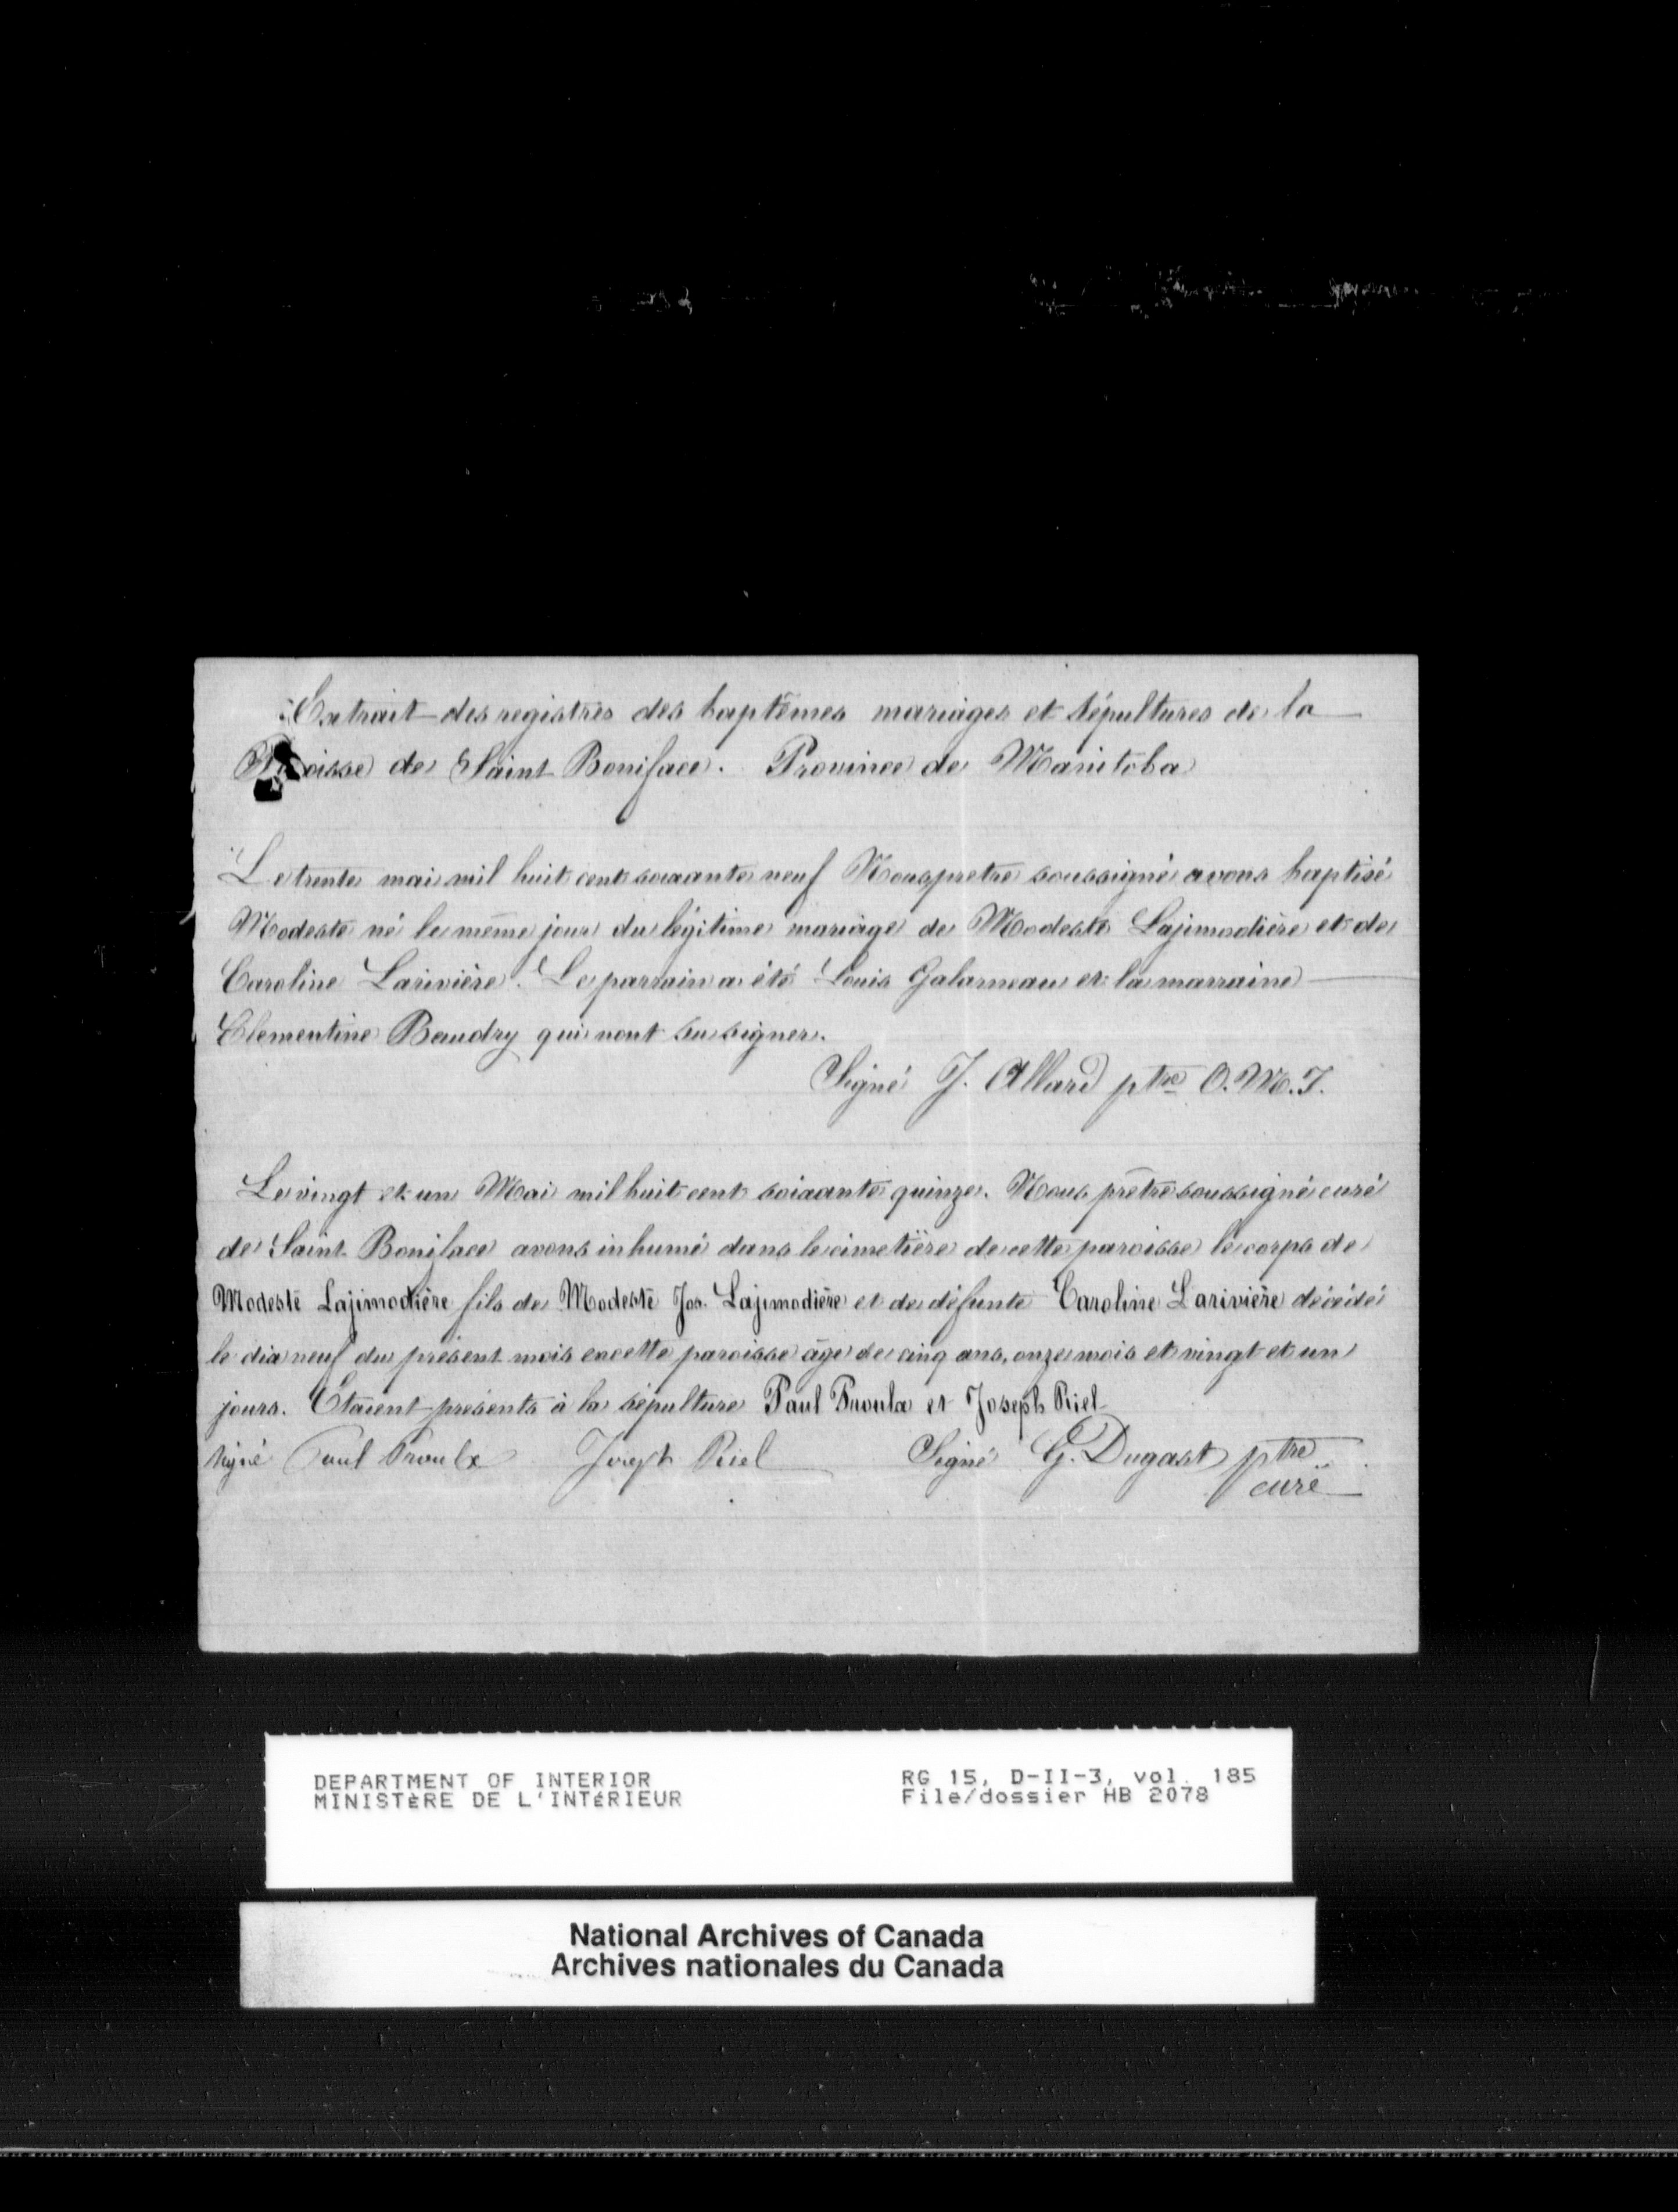 Extrait des registres des baptêmes mariages et sépultures de la
Paroisse de Saint Boniface. Province de Manitoba
Le trente mai mil huit cent soixante neuf Nous pretre soussigné avons baptisé
Modeste né le même jour du légitime mariage de Modeste Lajimodière et de
Caroline Larivière. Le parrain a été Louis Galarneau et la marraine
Clementine Beaudry qui nont su signer.
Signé J. Allard ptre O.M.I.
Le vingt et un Mai mil huit cent soixante quinze. Nous prêtre soussigné curé
de Saint Boniface avons inhumé dans le cimetière de cette paroisse le corps de
Modeste Lajimodière fils de Modeste Jos. Lajimodière et de défunte Caroline Larivière décédé
le dix neuf du présent mois en cette paroisse âgé de cinq ans, onze mois et vingt et un
jours. Etaient présents à la sépulture Paul Proulx et Joseph Riel
signé Paul Proulx Joseph Riel Signé G. Dugast ptre
curé
DEPARTMENT OF INTERIOR RG 15, D-II-3, vol. 185
MINISTÈRE DE L'INTÉRIEUR File/dossier HB 2078
National Archives of Canada
Archives nationales du Canada